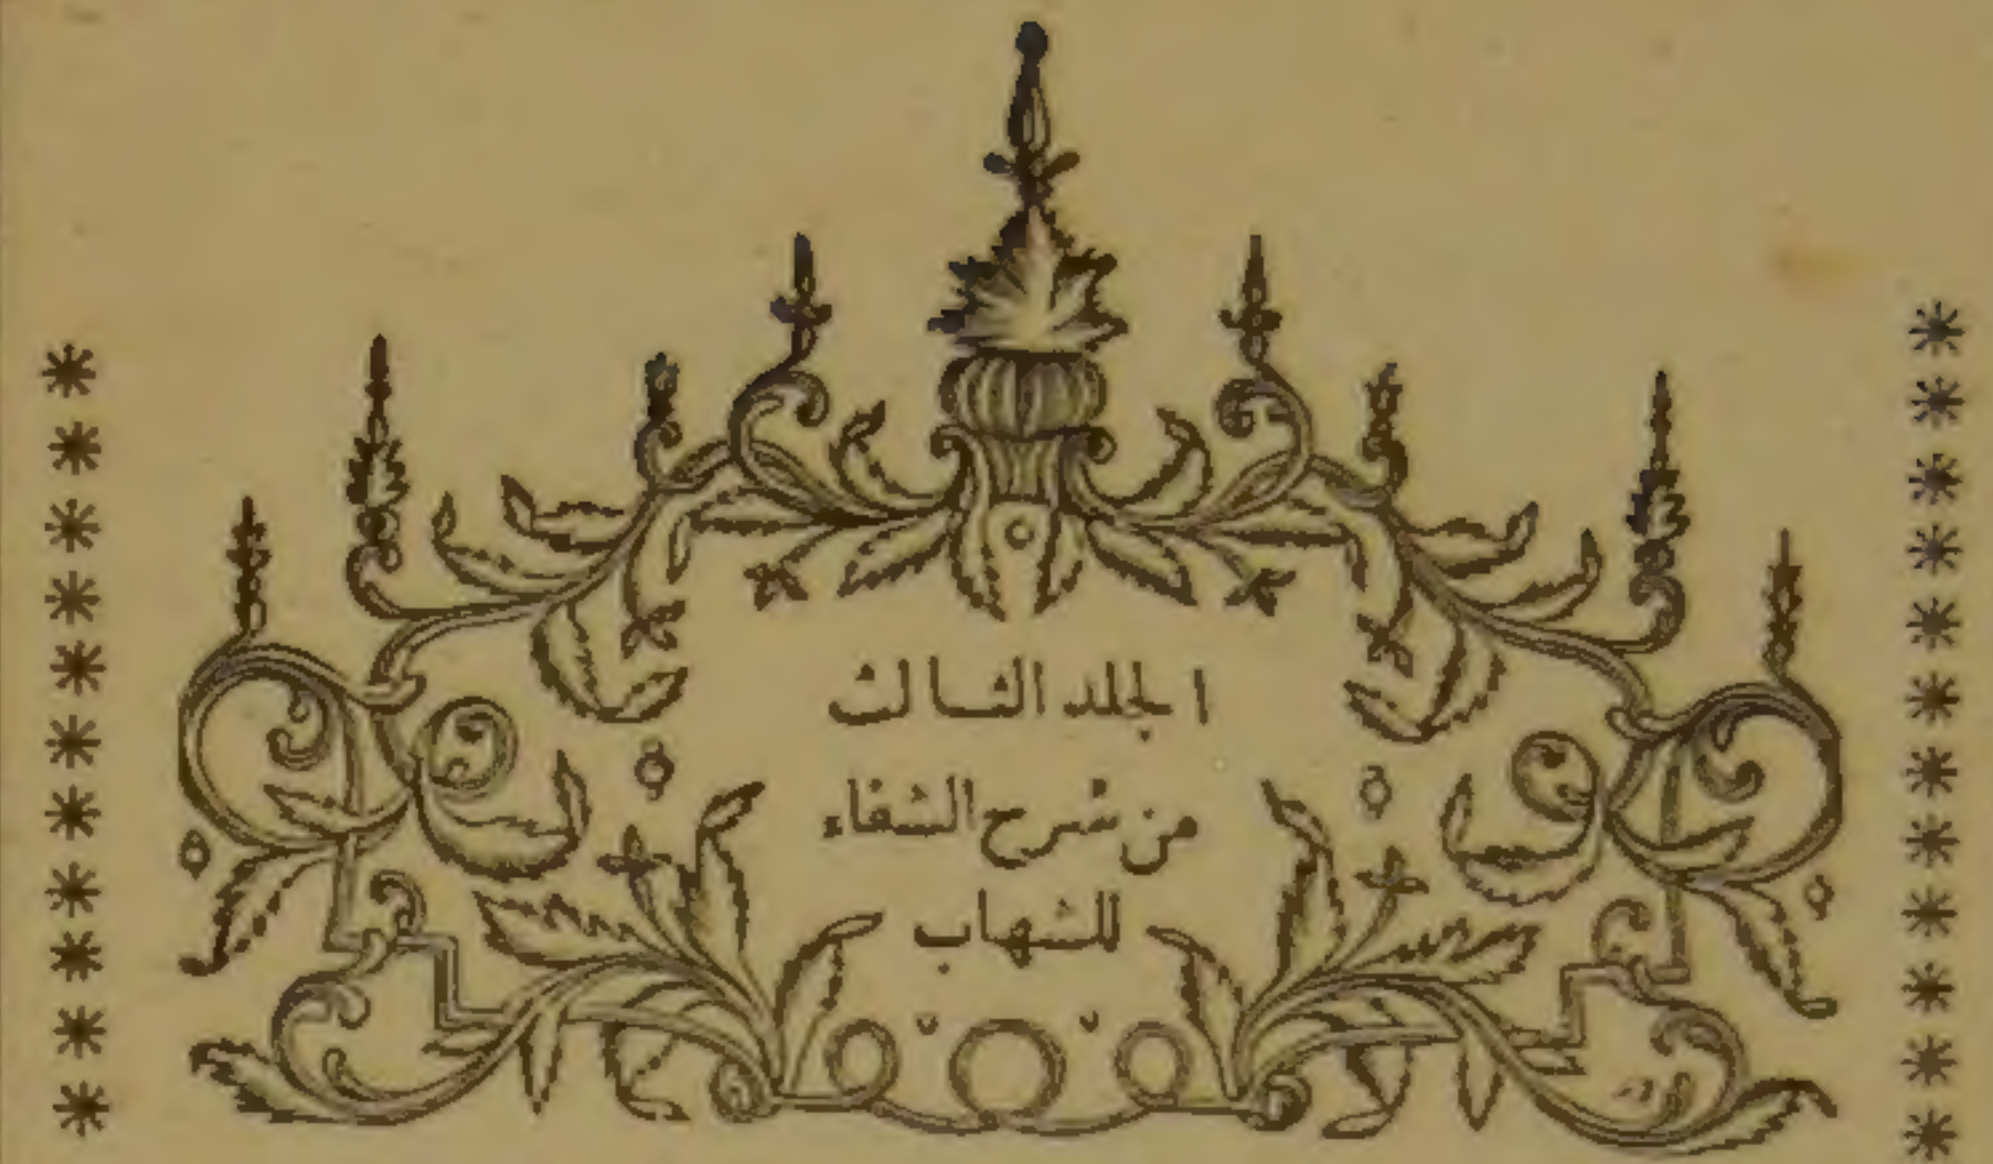 الجلد الثالث
من شرح الشفاء
للشهاب